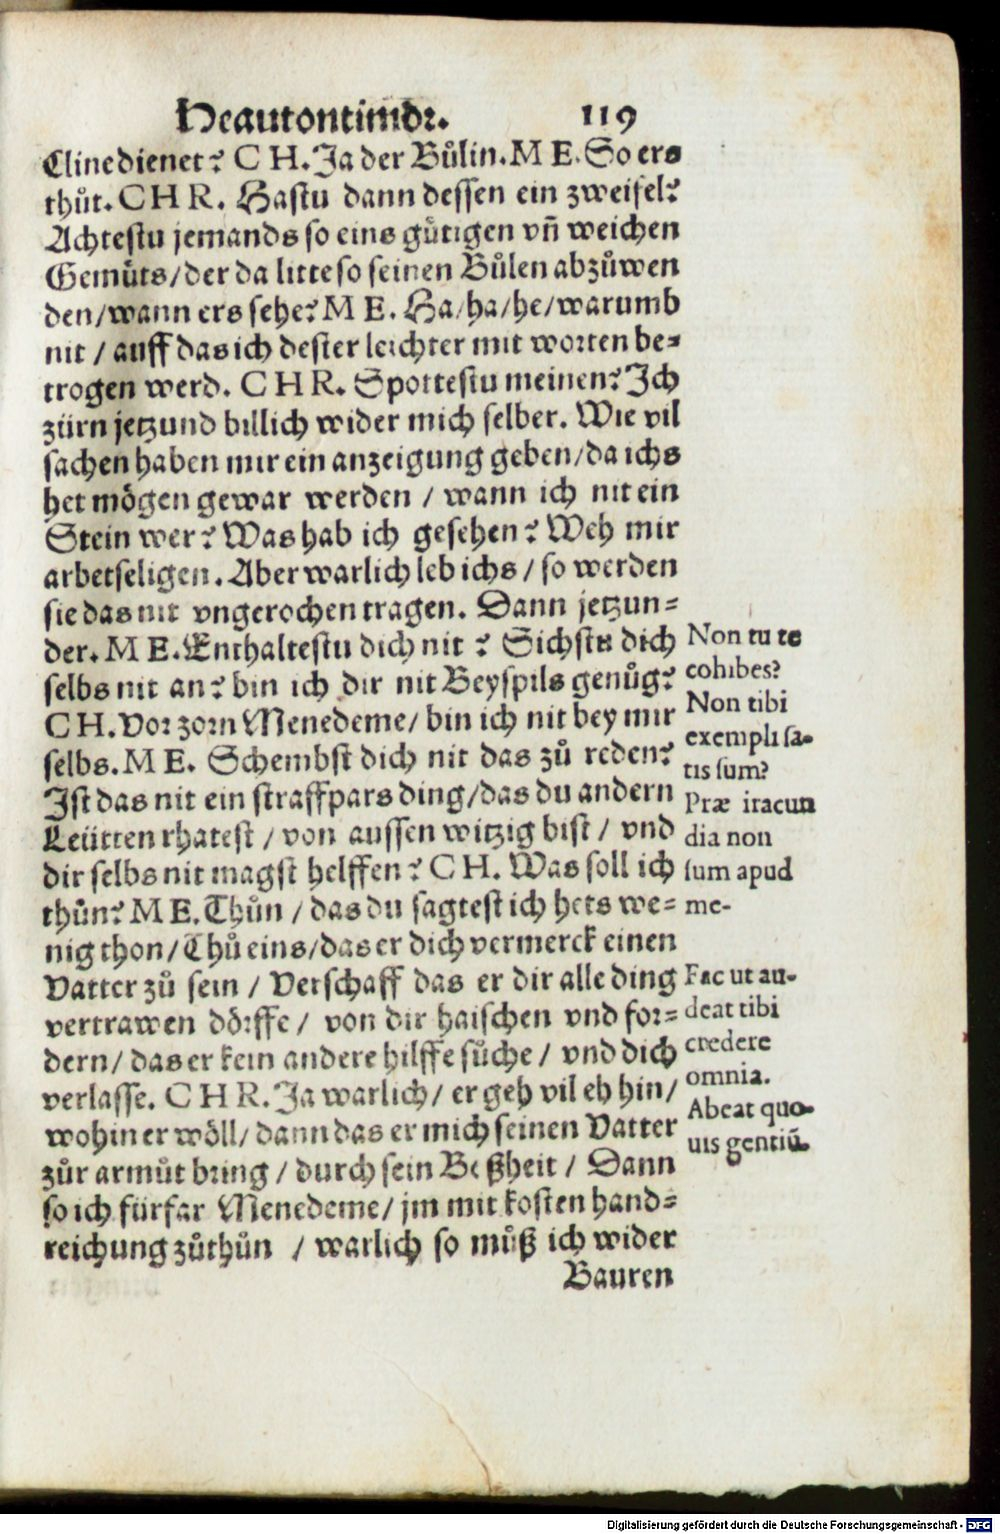 Heautontimor. 119
Clinedienet? C H. Ja der Bůlin. M E. So ers
thůt. C H R. Hastu dann dessen ein zweifel?
Achtestu jemands so eins gůtigen vñ weichen
Gemüts/der da litte so seinen Bůlen abzůwen
den/wann ers sehe? M E. Ha/ha/he/warumb
nit / auff das ich dester leichter mit worten be=
trogen werd. C H R. Spottestu meinen? Ich
zürn jetzund billich wider mich selber. Wie vil
sachen haben mir ein anzeigung geben/da ichs
het mögen gewar werden / wann ich nit ein
Stein wer? Was hab ich gesehen? Weh mir
arbetseligen. Aber warlich leb ichs / so werden
sie das nit vngerochen tragen. Dann jetzun=
der. M E. Enthaltestu dich nit? Sichstu dich
selbs nit an? bin ich dir nit Beyspils genůg?
C H. Vor zorn Menedeme/ bin ich nit bey mir
selbs. M E. Schembst dich nit das zů reden?
Ist das nit ein straffpars ding/das du andern
Leütten rhatest / von aussen witzig bist / vnd
dir selbs nit magst helffen? C H. Was soll ich
thůn? M E. Thůn / das du sagtest ich hets we=
nig thon/Thů eins/das er dich vermerck einen
Vatter zů sein / Verschaff das er dir alle ding
vertrawen dörffe/ von dir haischen vnd for=
dern/ das er kein andere hilffe sůche / vnd dich
verlasse. C H R. Ja warlich/ er geh vil eh hin/
wohin er wöll/ dann das er mich seinen Vatter
zůr armůt bring / durch sein Boßheit / Dann
so ich fürfar Menedeme/ jm mit kosten hand=
reichung zůthůn / warlich so můß ich wider
Bauren
Non tu te
cohibes?
Non tibi
exempli sa-
tis sum?
Præ iracun
dia non
sum apud
me-
Fac ut au-
deat tibi
credere
omnia.
Abeat quo-
uis gentiū.
Digitalisierung gefördert durch die Deutsche Forschungsgemeinschaft - DFG